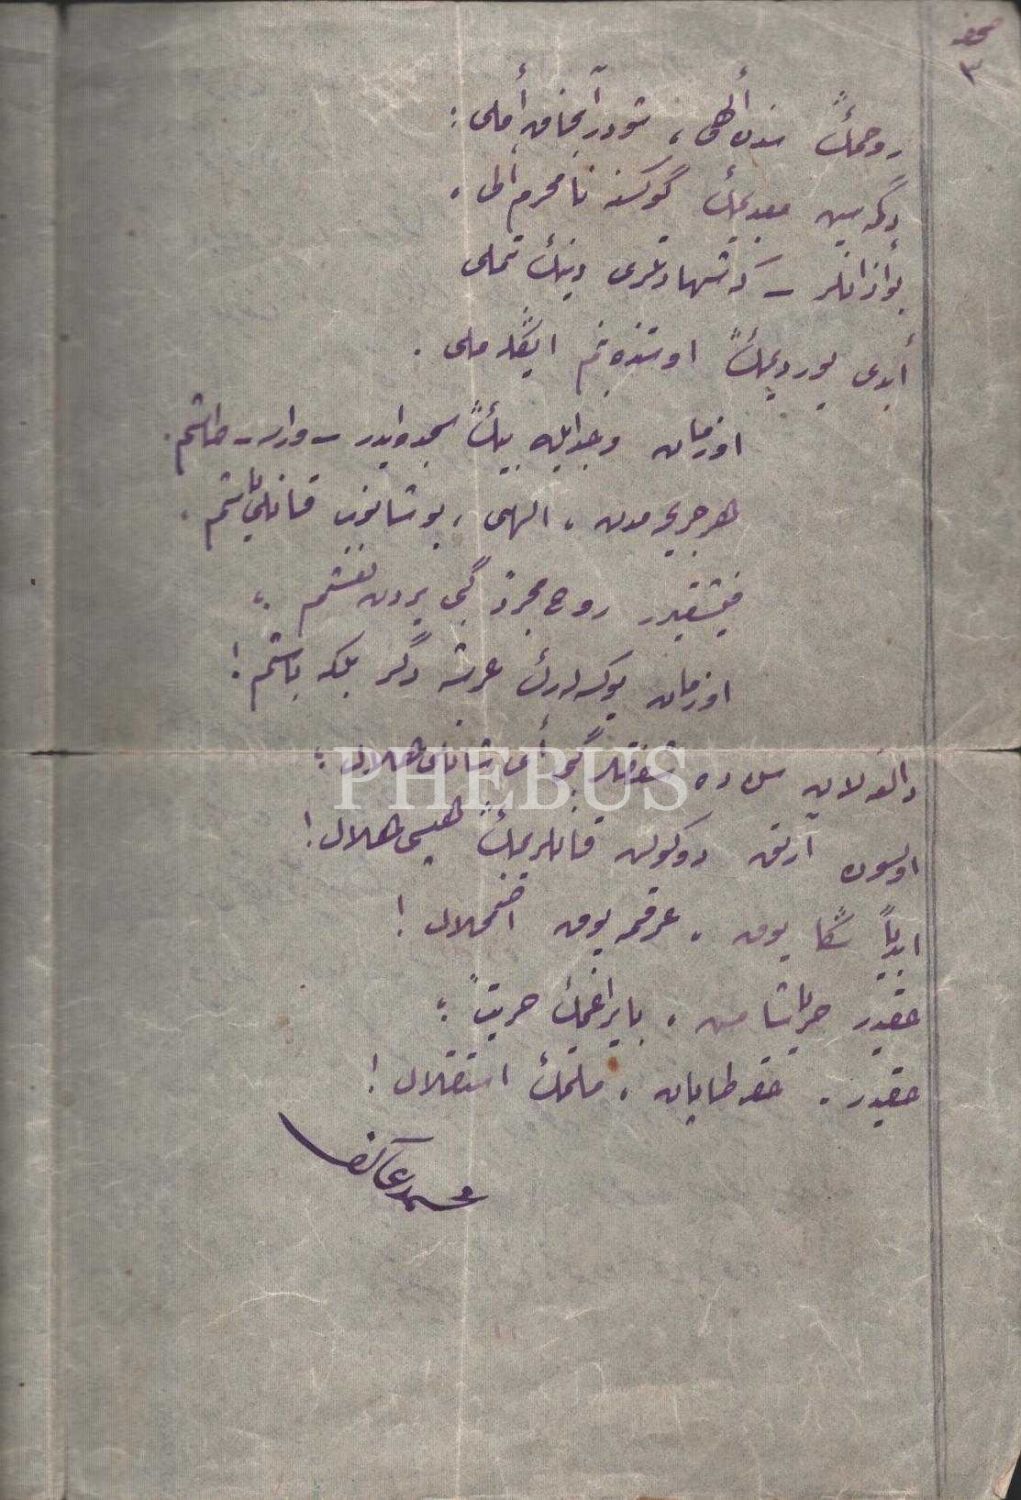 صحیفه
٣
روحمڭ سندن الٰهی ، شودر آنجاق أملی :
دگمەسین معبدیمڭ گوگسنه نامحرم ألی ،
بو أذانلر ـ كه شهادتلری دینڭ تملی
أبدی یوردیمڭ اوستنده بنم ایڭله‌ملی .
او زمان وجد ایله بیڭ سجده ایدر ـ وارسه ـ طاشم .
هر جریحه‌مدن ، الهی ، بوشانوب قانلی یاشم .
فیشقیرر روح مجرد گبی یردن نعشم ؛
او زمان یوكسه‌لرك عرشه دگر بلكه باشم !
دالغه‌لان سن ده شفقلر گبی أی شانلی هلال ؛
اولسون آرتق دوكولن قانلریمڭ هپسی حلال !
ابدیاً سڭا یوق ، عرقمه یوق اضمحلال !
حقیدر حر یاشامش ، بایراغمڭ حریت ؛
حقیدر ، حقه طاپان ، ملتمڭ استقلال !
محمد عاكف
PHEBUS